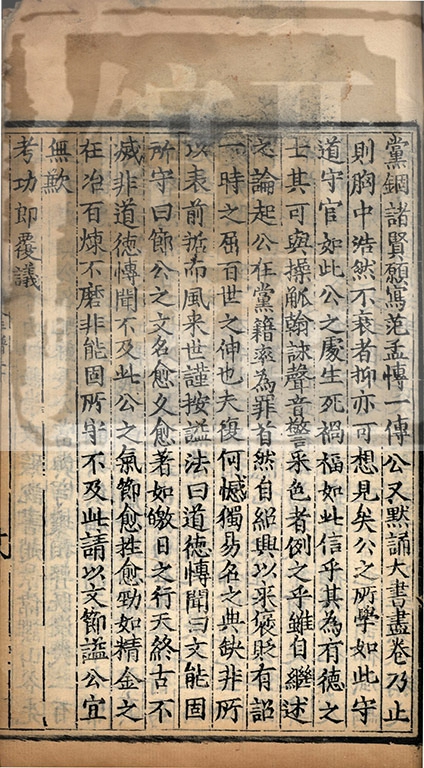 黨錮諸賢願寫范孟博一傳公又黙誦大書盡卷乃止
則胸中浩然不衰者抑亦可想見矣公之所學如此守
道守官如此公之處生死禍福如此信乎其為有徳之
士其可與操觚翰諫聲音警采色者例之乎雖自繼述
之論起公在黨籍率為罪首然自紹興以來褒貶有詔
一時之屈百世之伸也夫復何憾獨易名之典缺非所
以表前哲而風来世謹按謚法曰道徳博聞曰文能固
所守曰節公之文名愈久愈著如皦日之行天終古不
滅非道徳博聞不及此公之氣節愈挫愈勁如精金之
在冶百煉不磨非能固所守不及此請以文節謚公宜
無歉
考功郎覆議